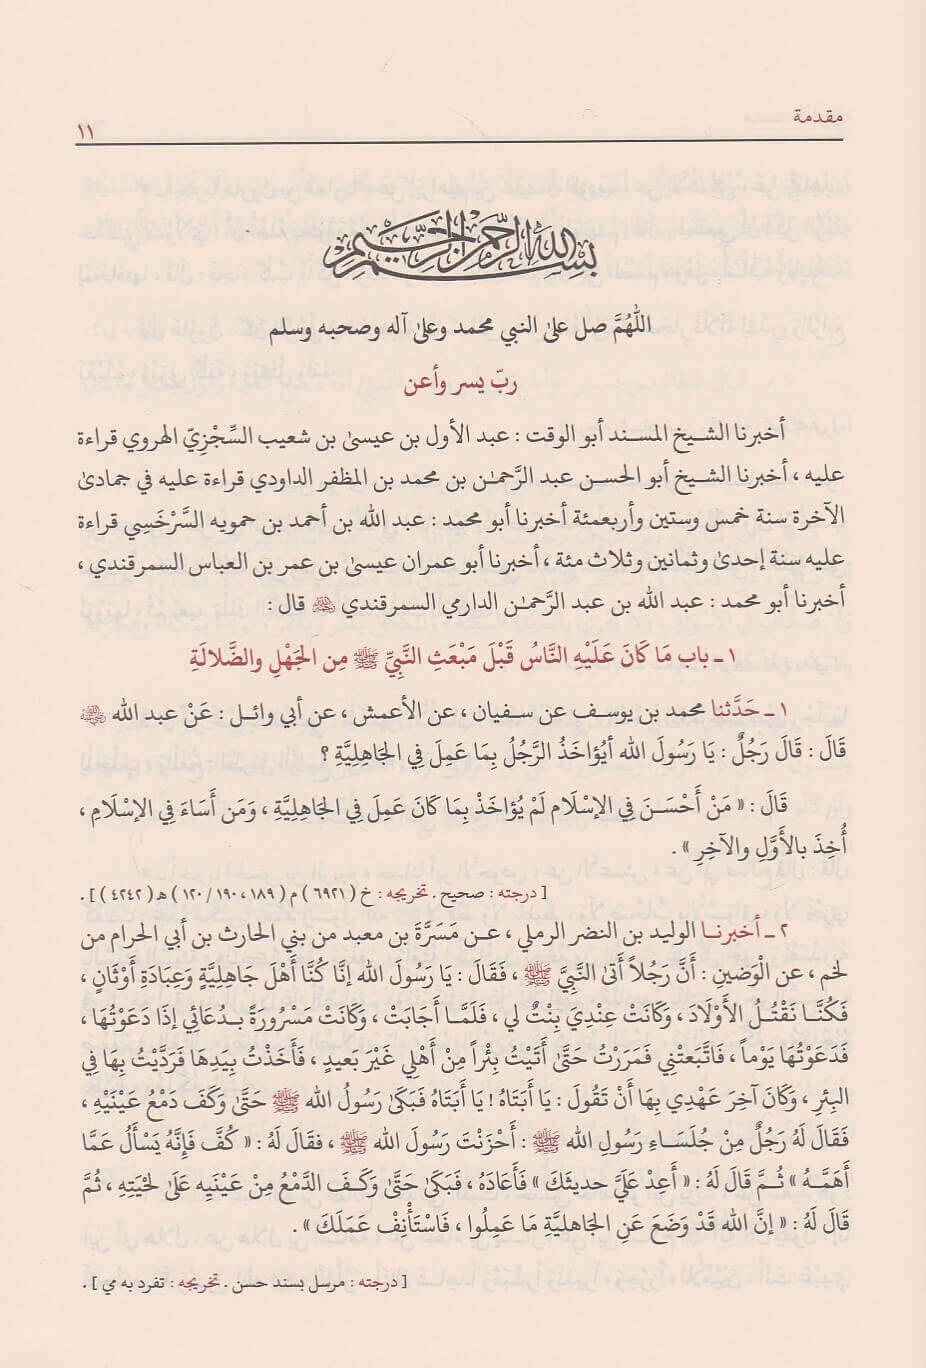 مقدمة
١١
بسم الله الرحمن الرحيم
اللّٰهُمَّ صل علىٰ النبي محمد وعلىٰ آله وصحبه وسلم
ربّ يسر وأعن
أخبرنا الشيخ المسند أبو الوقت : عبد الأول بن عيسىٰ بن شعيب السِّجْزِيّ الهروي قراءة
عليه ، أخبرنا الشيخ أبو الحسن عبد الرَّحمٰن بن محمد بن المظفر الداودي قراءة عليه في جمادىٰ
الآخرة سنة خمس وستين وأربعمئة أخبرنا أبو محمد : عبد الله بن أحمد بن حمويه السَّرْخَسِي قراءة
عليه سنة إحدىٰ وثمانين وثلاث مئة ، أخبرنا أبو عمران عيسىٰ بن عمر بن العباس السمرقندي ،
أخبرنا أبو محمد : عبد الله بن عبد الرَّحمٰن الدارمي السمرقندي قال :
١ ـ باب مَا كَانَ عَلَيْهِ النَّاسُ قَبْلَ مَبْعَثِ النَّبِيِّ ﷺ مِن الجَهْلِ والضَّلالَةِ
١ ـ حَدَّثنا محمد بن يوسف عن سفيان ، عن الأعمش ، عن أبي وائل : عَنْ عبد الله
قَالَ : قَالَ رَجُلٌ : يَا رَسُولَ الله أيُؤاخَذُ الرَّجُلُ بِمَا عَمِلَ فِي الجَاهِليَّةِ ؟
قَالَ : « مَنْ أَحْسَنَ فِي الإسْلَام لَمْ يُؤاخَذْ بِمَا كَانَ عَمِلَ فِي الجَاهِليَّةِ ، وَمَن أَسَاءَ فِي الإسْلَامِ ،
أُخِذَ بالأَوَّلِ والآخِرِ » .
[ درجته : صحيح . تخريجه : خ ( ٦٩٢١ ) م ( ١٨٩ ، ١٩٠ / ١٢٠ ) هـ ( ٤٢٤٢ ) ] .
٢ ـ أخبرنا الوليد بن النضر الرملي ، عن مَسَرَّةَ بن معبد من بني الحارث بن أبي الحرام من
لخم ، عن الْوَضينِ : أَنَّ رَجُلاً أَتىٰ النَّبِيَّ ﷺ ، فَقَالَ : يَا رَسُولَ الله إنَّا كُنَّا أَهْلَ جَاهِليَّةٍ وَعِبَادَةِ أَوْثَانٍ ،
فَكُنَّا نَقْتُلُ الأَوْلَادَ ، وَكَانَتْ عِنْدِيَ بِنْتٌ لي ، فَلَمَّا أَجَابَتْ ، وَكَانَتْ مَسْرُورَةً بِدُعَائِي إذَا دَعَوْتُهَا ،
فَدَعَوْتُهَا يَوْماً ، فَاتَّبَعتْنِي فَمَرَرْتُ حَتَّىٰ أَتَيْتُ بِئْراً مِنْ أَهْلِي غَيْرَ بَعيدٍ ، فَأَخَذْتُ بِيَدِهَا فَرَدَّيْتُ بِهَا فِي
البِئرِ ، وَكَانَ آخِرَ عَهْدِي بِهَا أَنْ تَقُولَ : يَا أَبَتَاهُ ! يَا أَبَتَاهُ فَبَكىٰ رَسُولُ الله ﷺ حَتَّىٰ وَكَفَ دَمْعُ عَيْنَيْهِ ،
فَقَالَ لَهُ رَجُلٌ مِنْ جُلَسَاءِ رَسُولِ الله ﷺ : أَحْزَنْتَ رَسُولَ الله ﷺ ، فقَالَ لَهُ : « كُفَّ فَإِنَّهُ يَسْأَلُ عَمَّا
أَهَمَّهُ » ثُمَّ قَالَ لَهُ : « أَعِدْ عَلَيَّ حديثَكَ » فَأَعَادَهُ ، فَبَكىٰ حَتَّىٰ وَكَفَ الدَّمْعُ مِنْ عَيْنَيهِ عَلَىٰ لحْيَتِهِ ، ثُمَّ
قَالَ لَهُ : « إنَّ الله قَدْ وَضَعَ عَنِ الجَاهليَّةِ مَا عَمِلُوا ، فَاسْتَأْنِفْ عَمَلَكَ » .
[ درجته : مرسل بسند حسن . تخريجه : تفرد به مي ] .